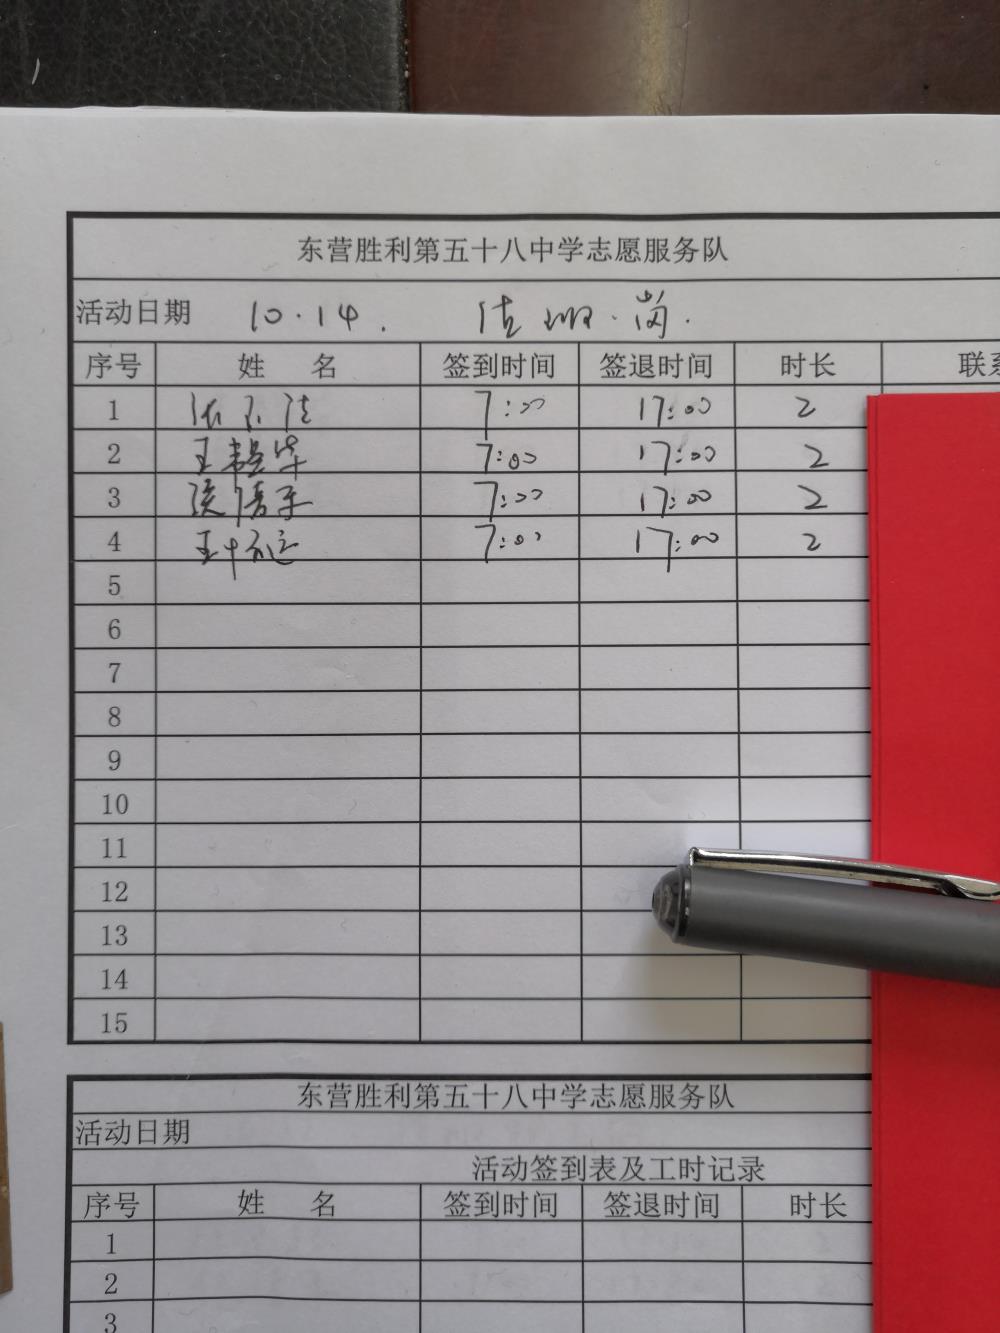 东营胜利第五十八中学志愿服务队
活动日期 10.14. 岗.
序号 姓 名 签到时间 签退时间 时长 联系
1 7:00 17:00 2
2 王 华 7:00 17:00 2
3 7:00 17:00 2
4 王 7:00 17:00 2
5
6
7
8
9
10
11
12
13
14
15
东营胜利第五十八中学志愿服务队
活动日期
活动签到表及工时记录
序号 姓 名 签到时间 签退时间 时长
1
2
3